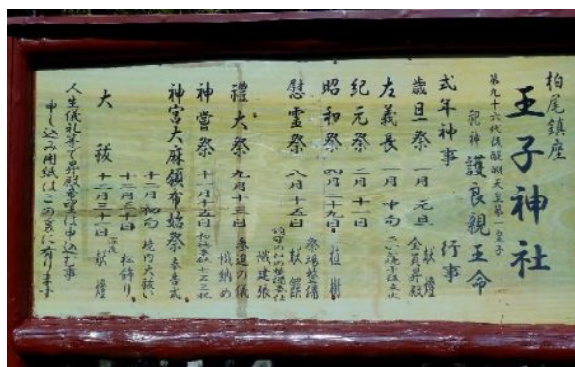 柏尾鎮座
王子神社
第九十六代後醍醐天皇第一皇子
祀神 護良親王命
式年神事 行事
歳旦祭 一月 元旦 献燈 全員昇殿
左義長 一月 中旬
紀元祭 二月 十一日
昭和祭 四月二十九日 植樹
慰霊祭 八月 十五日 祭場整備 献饌
禮大祭 九月 十三日 参進の儀 幟建張 幟納め
神嘗祭 十一月十五日
神宮大麻頒布始祭 奉告式
大祓 十二月初旬 境内大祓い
十二月三十日 松飾り
十二月三十一日 献燈
人生儀礼等で昇殿希望は申込む事
申し込み用紙はこの裏に有ります